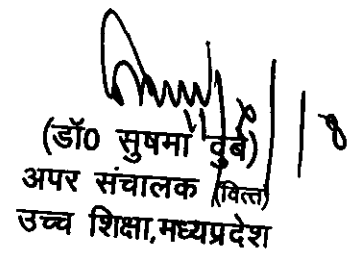 (डॉ0 सुषमा दुबे)
अपर संचालक (वित्त)
उच्च शिक्षा,मध्यप्रदेश